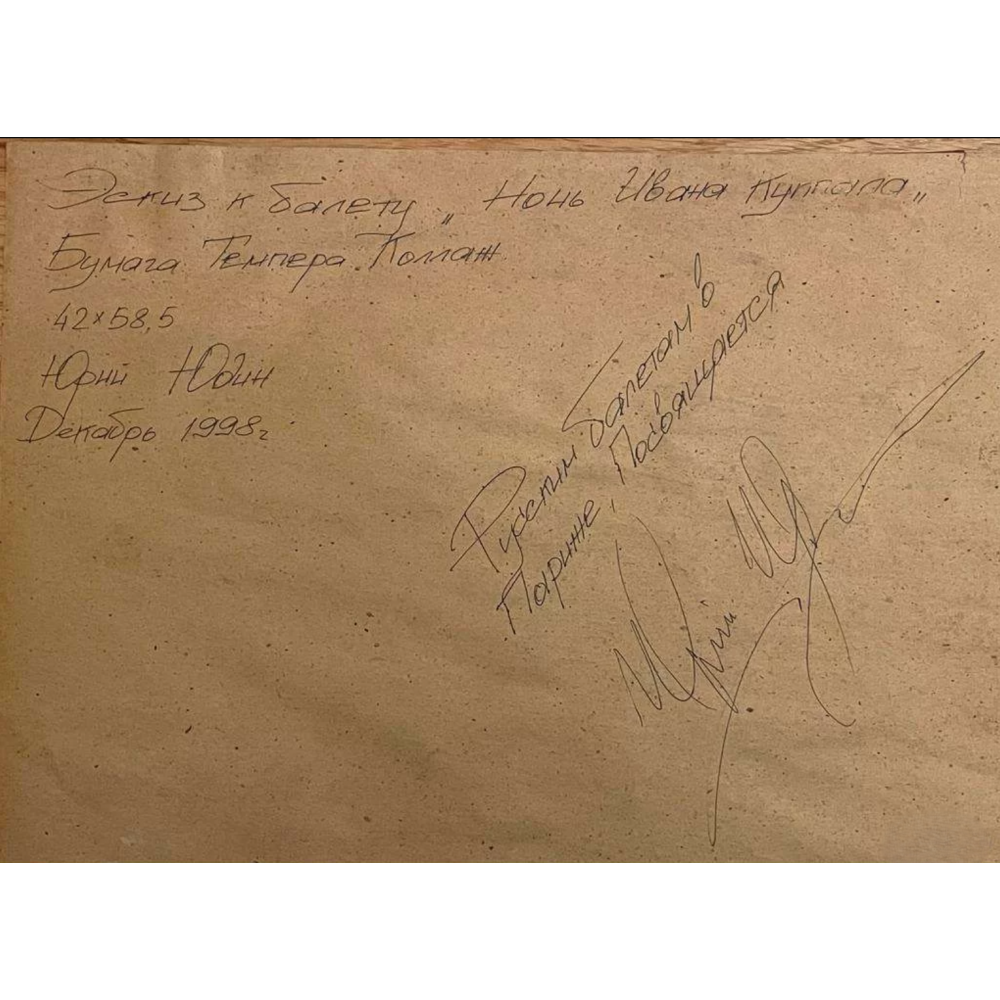 Эскиз к балету „ Ночь Ивана Куппала „
Бумага. Темпера. Коллаж
42×58,5
Юрий Юдин
Декабрь 1998г
Русским балетам в
Париже, Посвящается
Юрий